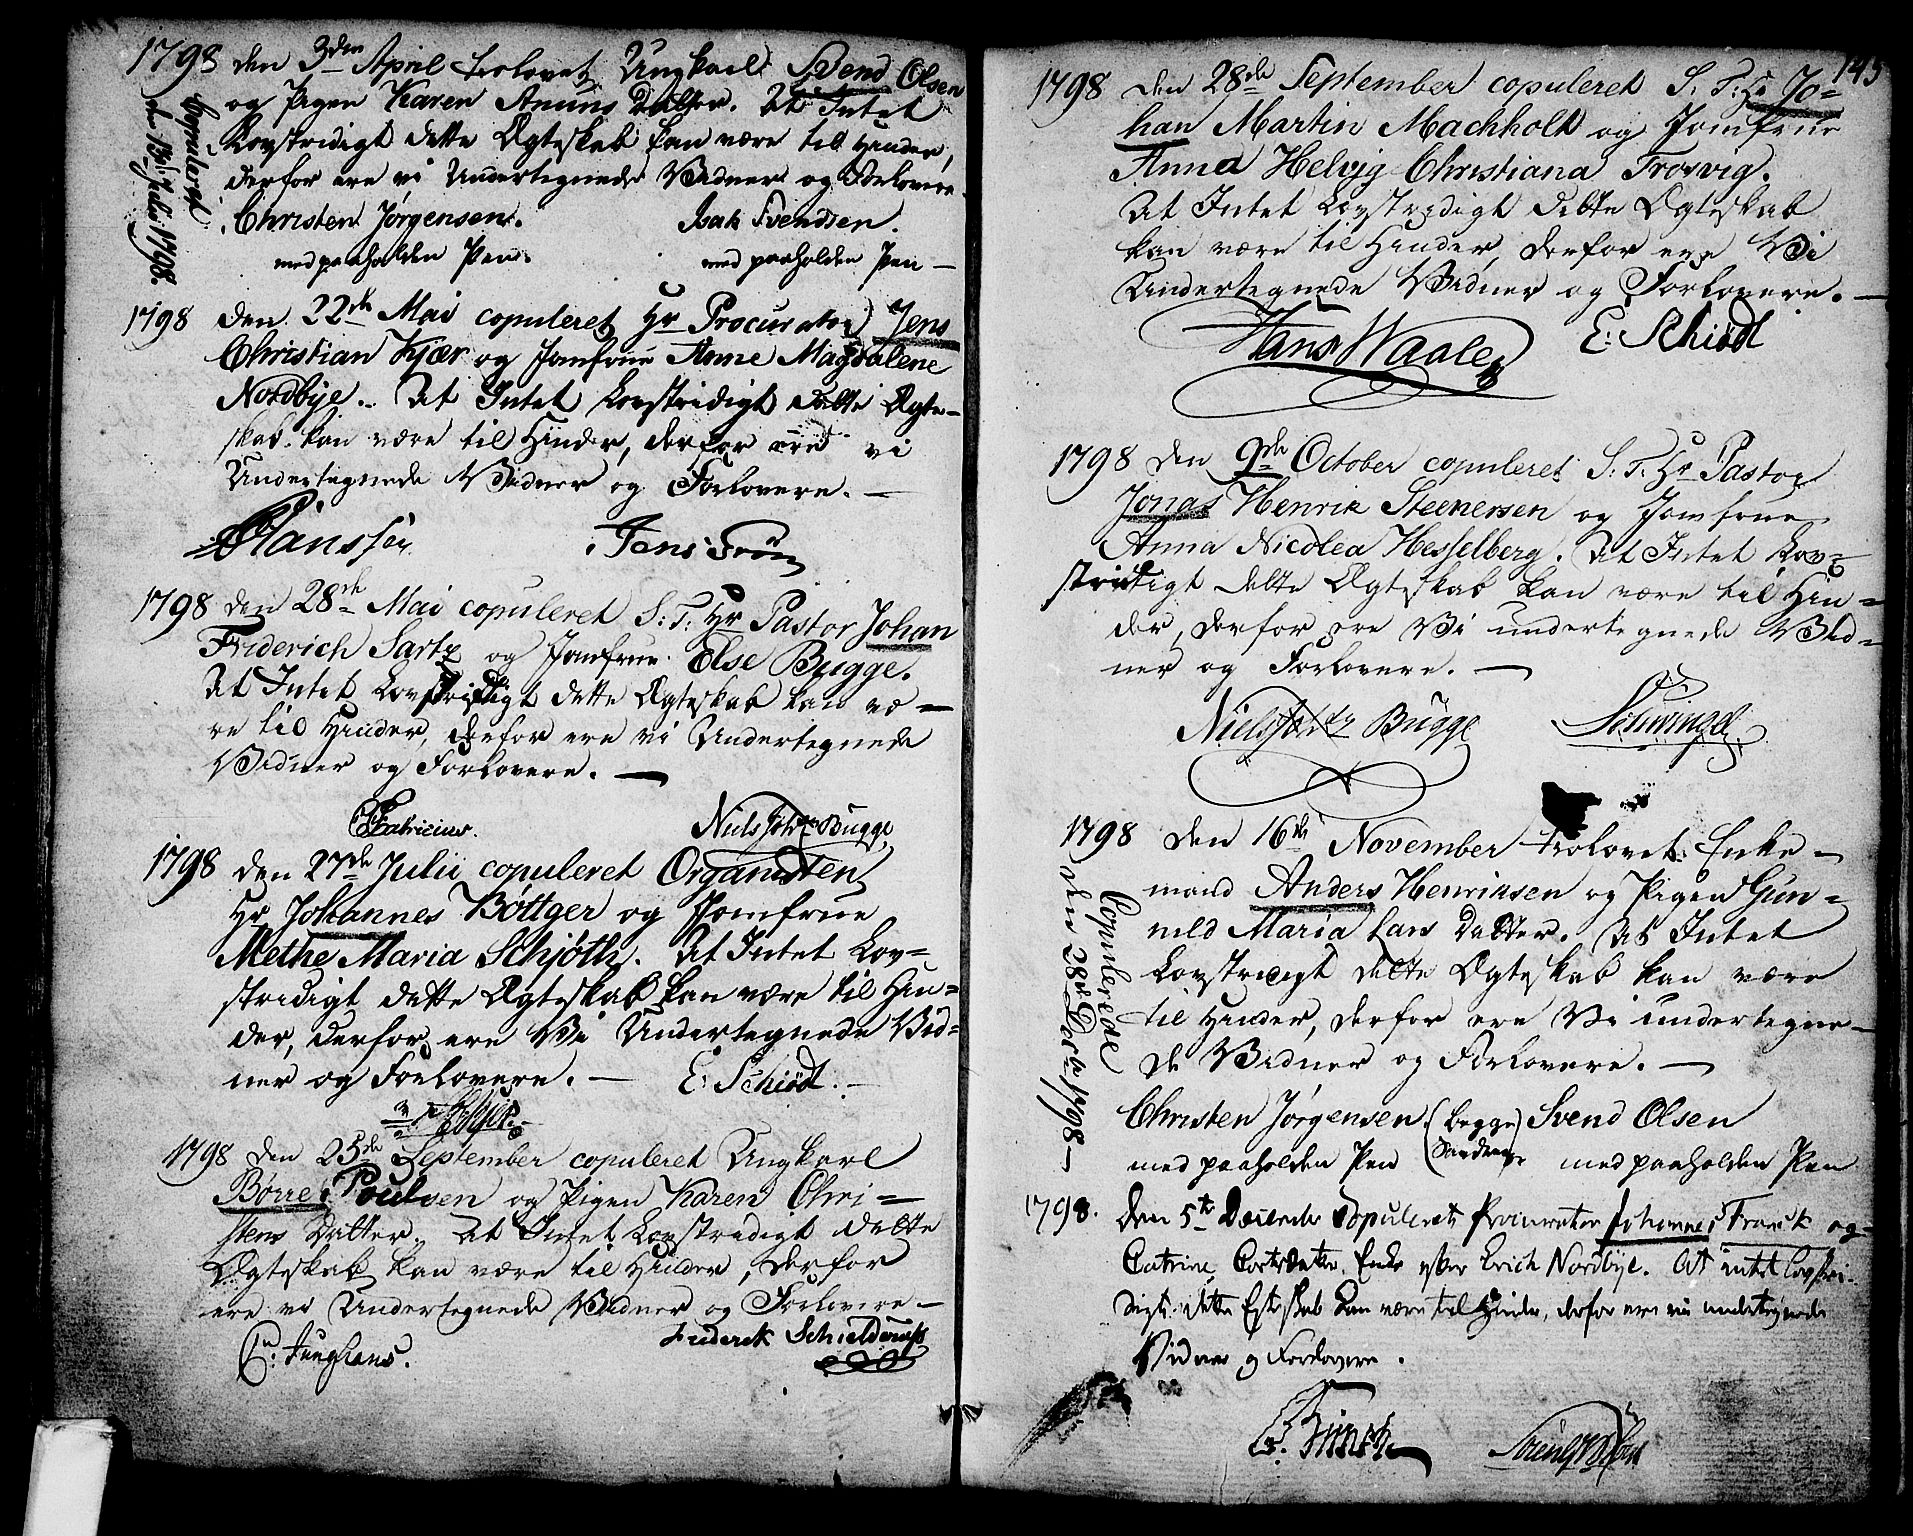 1798 den 3den April trolovet Ungkarl Svend Olsen
og Pigen Karen Datter. At Intet
Lovstridigt dette Ægteskab kan være til Hinder,
derfor ere vi Undertegnede Vidner og Forlovere.
Christen Jørgensen. Isak Svendsen.
med paaholden Pen. med paaholden Pen —
Copuleret
den Julii 1798.
1798 den 22de Mai copuleret Hr Procurator Jens
Christian Kjær og Jomfrue Anne Magdalene
Nordbye. At Intet Lovstridigt dette Ægte-
skab kan være til Hinder, derfor ere vi
Undertegnede Vidner og Forlovere. —
Hanssen Jens
1798 den 28de Mai copuleret S: T: Hr Pastor Johan
Friderich Sartz og Jomfrue Else Bugge.
At Intet Lovstridigt dette Ægteskab kan væ-
re til Hinder, derfor ere vi Undertegnede
Vidner og Forlovere. —
Fabricius. Niels Bugge
1798 den 27de Julii copuleret Organisten
Hr Johannes Bøttger og Jomfrue
Methe Maria Schjøth. At Intet Lov=
stridigt dette Ægteskab kan være til Hin=
der, derfor ere Vi Undertegnede Vid=
ner og Forlovere. — E: Schiödt. —
1798 den 25de September copuleret Ungkarl
Børre Poulsen og Pigen Karen Chri=
stens Datter. At Intet Lovstridigt dette
Ægteskab kan være til Hinder, derfor
ere vi Undertegnede Vidner og Forlovere —
Junghans. Friderik Schielderup
145
1798 den 28de September copuleret S: T: Hr Jo=
han Martin Machholt og Jomfrue
Anna Helvig Christiana Frosvig.
At Intet Lovstridigt dette Ægteskab
kan være til Hinder, derfor ere Vi
Undertegnede Vidner og Forlovere. —
Hans Waaler E: Schiödt
1798 den 9de October copuleret S: T: Hr Pastor
Jonas Henrik Steenersen og Jomfrue
Anna Nicolea Hesselberg. At Intet Lov=
stridigt dette Ægteskab kan være til Hin=
der, derfor ere Vi undertegnede Vid=
ner og Forlovere. —
Niels Bugge
1798 den 16de November trolovet Enke=
mand Anders Henriksen og Pigen Gun=
nild Maria Lars Datter. At Intet
Lovstridigt dette Ægteskab kan være
til Hinder, derfor ere Vi undertegne=
de Vidner og Forlovere. —
Copulerede
den 28de Decbr 1798 —
Christen Jørgensen (begge Svend Olsen
med paaholden Pen med paaholden Pen
1798. Den 5te December Copuleret Procurator Johannes Franck og
Catrine Datter, Enke efter Erich Nordbye. At intet lovstri-
digt dette Egteskab kan være til Hinder, derfor ere vii undertegnede
Vidner og Forlovere.